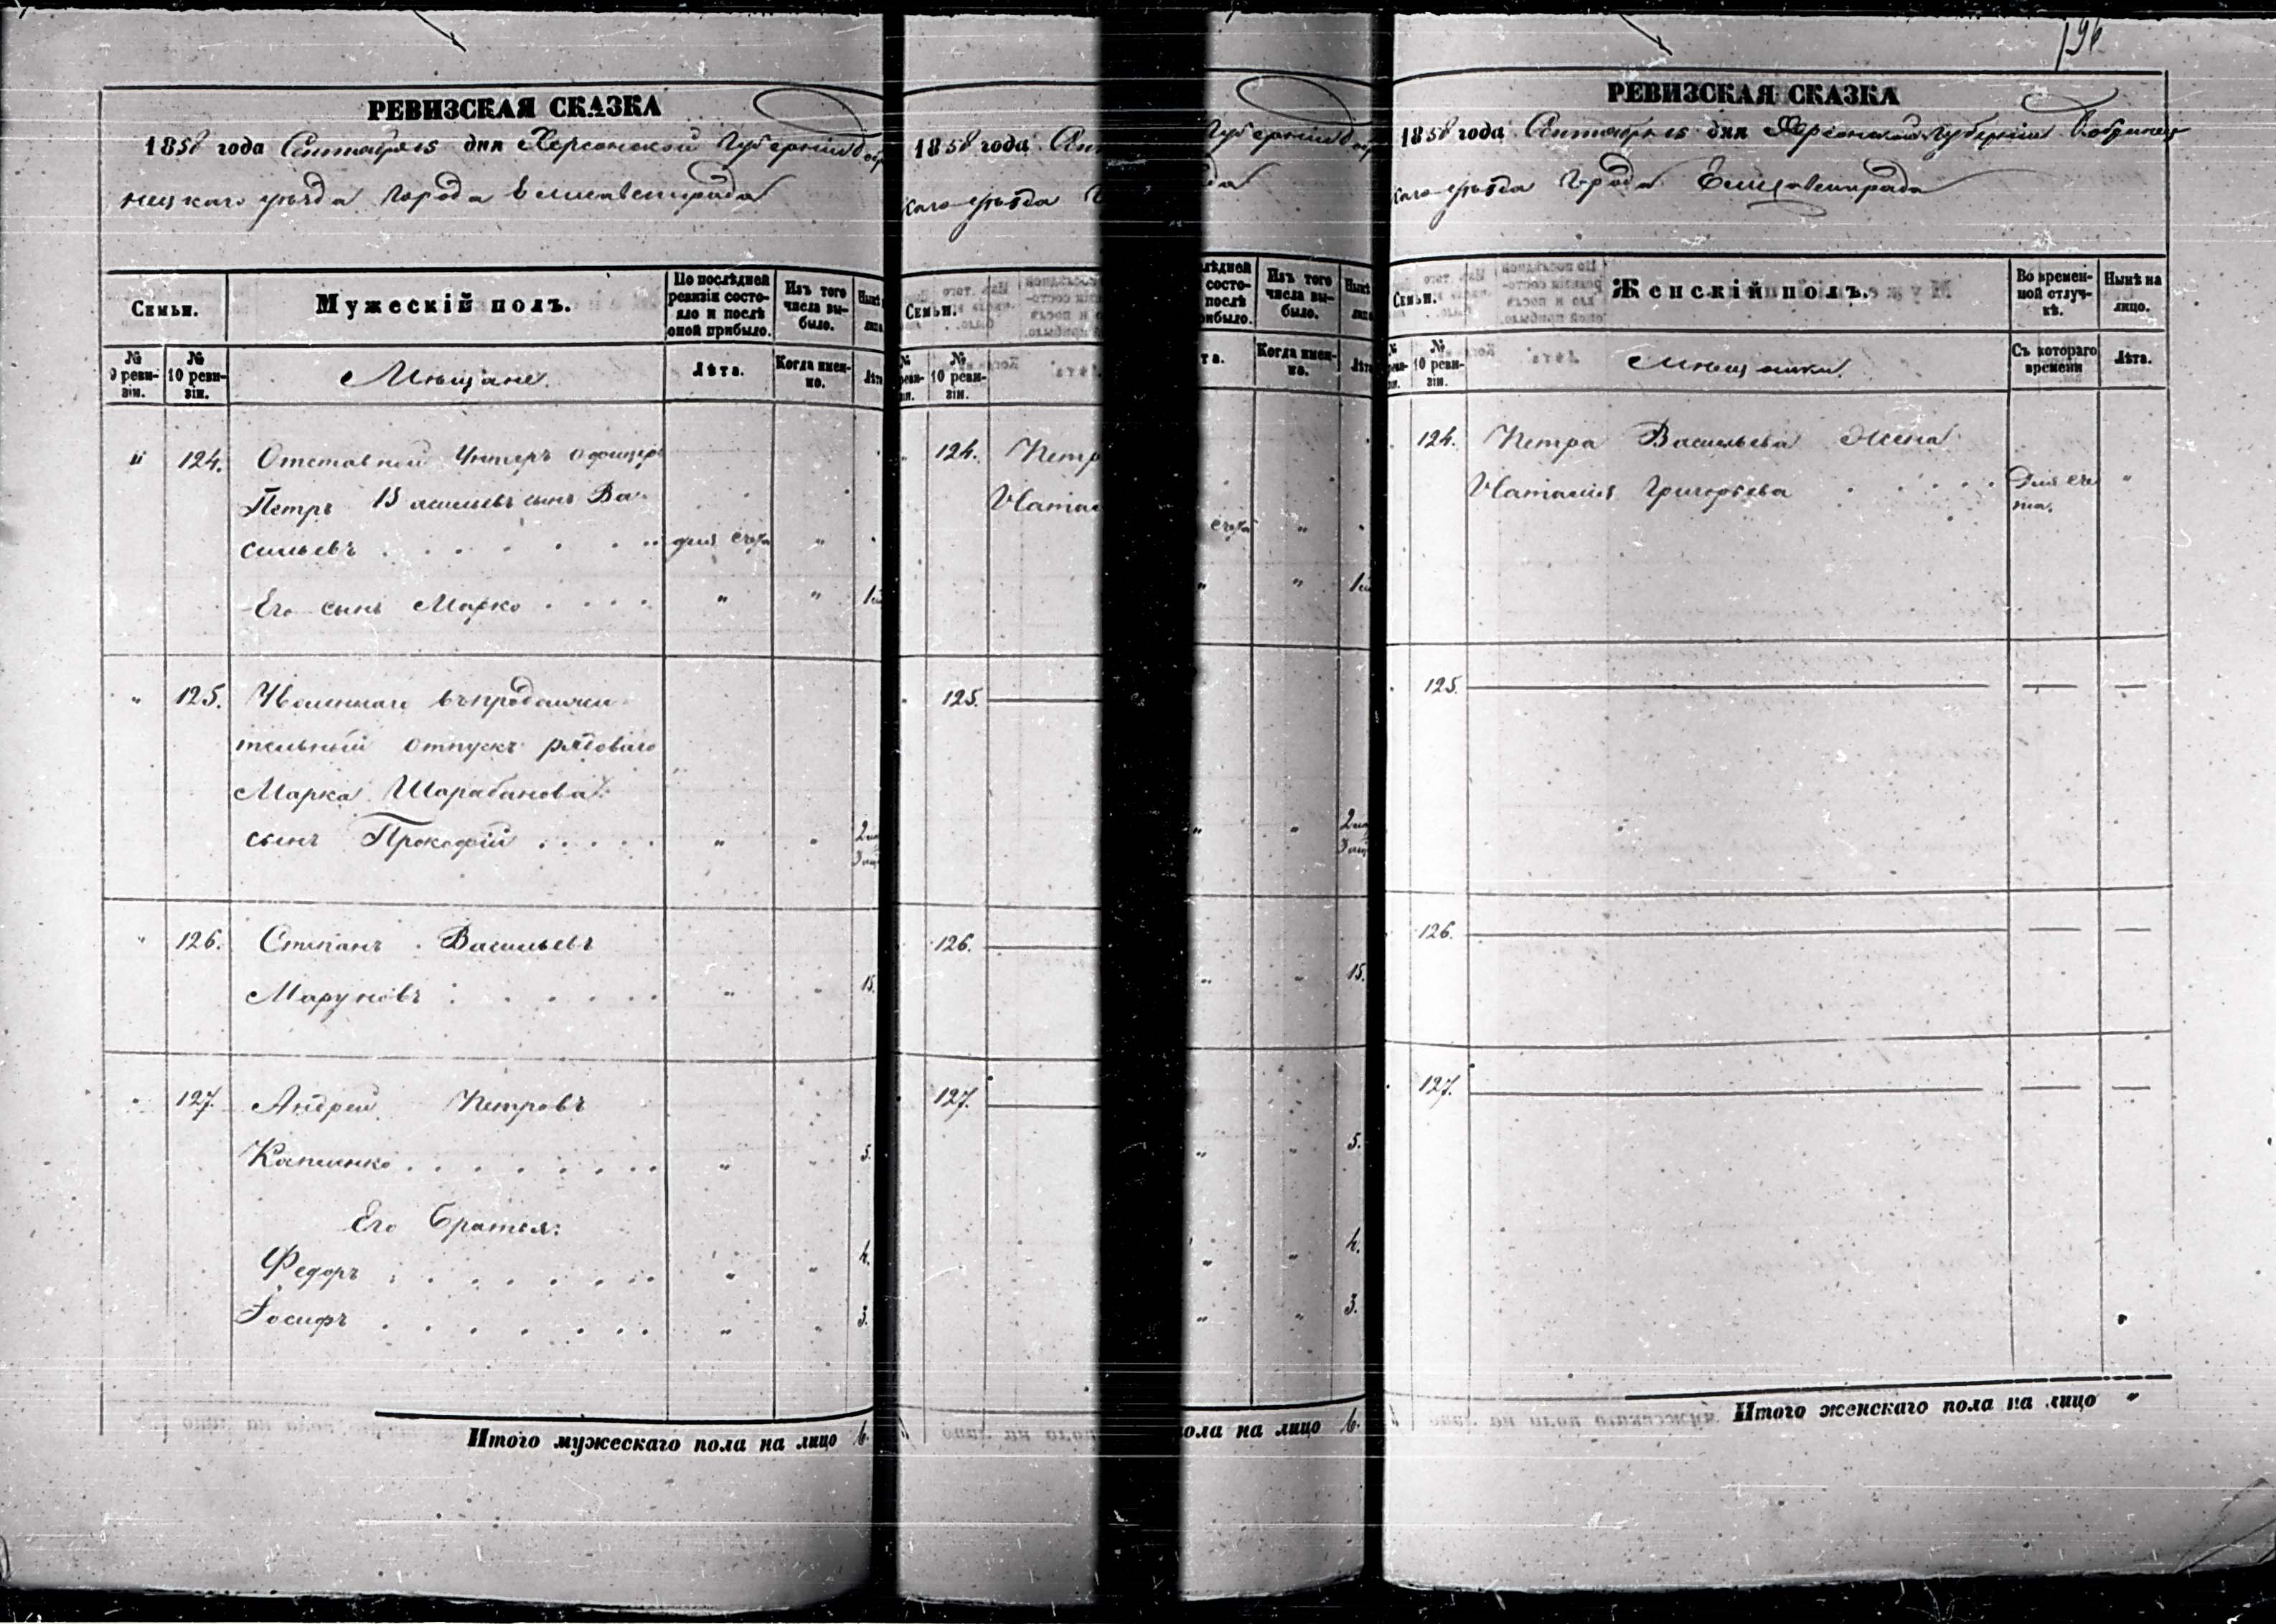 196
РЕВИЗСКАЯ СКАЗКА
1858 года Сентября 15 дня Херсонской Губерніи Бобри
нецкаго уѣзда города Елисаветграда
Семьи.
Мужескій полъ.
По послѣдней ревизіи состояло и послѣ оной прибыло.
Изъ того числа выбыло.
Нынѣ
лицо
№ 9 ревизіи.
№ 10 ревизіи.
Мѣщане.
Лѣта.
Когда именно.
Лѣта
" 124. Отставной Унтеръ Офицеръ
Петръ Васильевъ сынъ Ва-
сильевъ . . . . . . . для счета "
Его сынъ Марко . . . . " " 1
" 125. Уволеннаго въ продолжи-
тельный отпускъ рядоваго
Марка Шарабанова
сынъ Прокофій . . . . . " " 2
" 126. Степанъ Васильевъ
Маруновъ . . . . . . " " 15.
" 127. Андрей Петровъ
Капченко . . . . . . . . " " 5.
Его Братья:
Федоръ . . . . . . . . " " 4.
Іосифъ . . . . . . . . " " 3.
Итого мужескаго пола на лицо 6.
1858 года Сен
Губерніи Бобр
каго уѣзда г
да
Семьи.
№ 10 ревизіи.
лѣдней
состо-
послѣ
рибыло.
Изъ того числа выбыло.
Нынѣ
лицо
та.
Когда именно.
Лѣта
124. Петр
Натал
счета "
" " 1
125.
" " 2
126.
" " 15.
127.
" " 5.
" " 4.
" " 3.
пола на лицо 6.
РЕВИЗСКАЯ СКАЗКА
1858 года Сентября 15 дня Херсонской Губерніи Бобринец
каго уѣзда города Елисаветграда
Семьи.
Женскій полъ.
Во временной отлучкѣ.
Нынѣ на лицо.
№ 10 ревизіи.
Мѣщанки.
Съ котораго времени
Лѣта.
124. Петра Васильева Жена
Наталія Григорьева . . . . . Для сче- "
та.
125. — —
126. — —
127. — —
Итого женскаго пола на лицо "